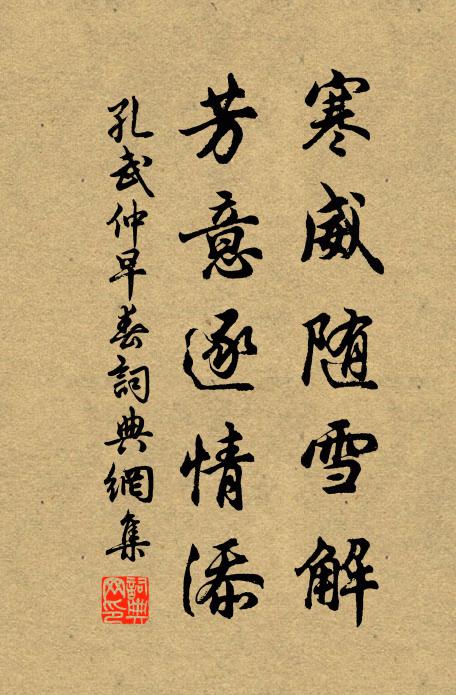 寒威随雪解
芳意逐情添
孔武仲早春詞典網集
詞典网印